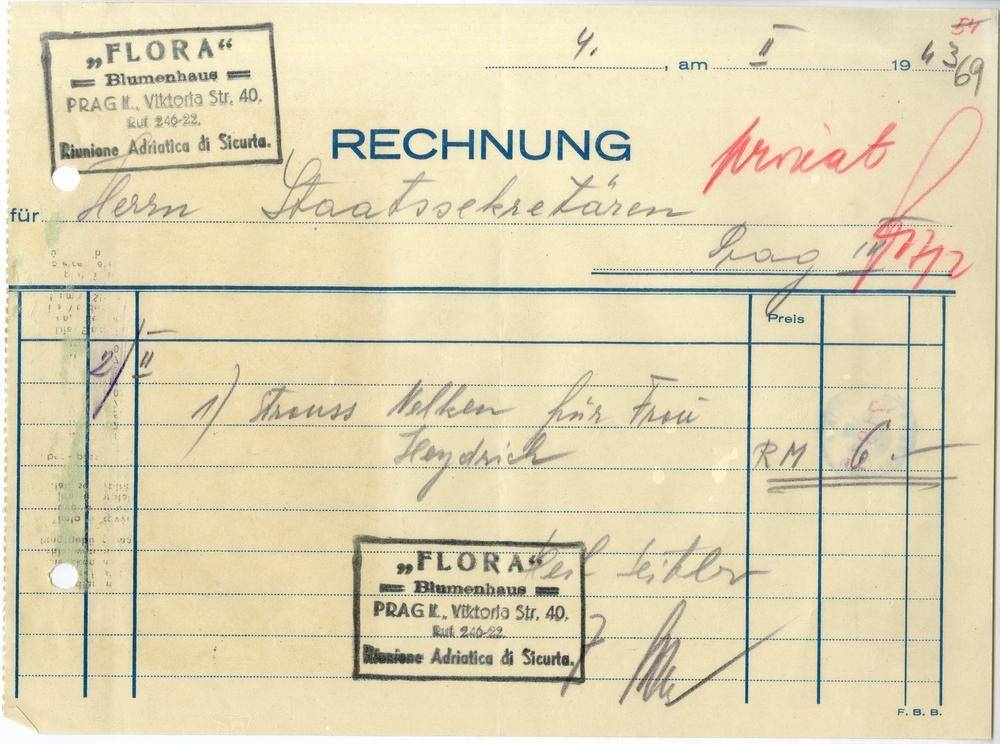 „FLORA“
Blumenhaus
PRAG II., Viktoria Str. 40.
Ruf 246-22.
Riunione Adriatica di Sicurta.
4. , am II 1943
54
69
RECHNUNG
privat
für Herrn Staatssekretären
Prag
Preis
2/II
1) Strauss Nelken für Frau
Heydrich
RM 6.-
Heil
„FLORA“
Blumenhaus
PRAG II., Viktoria Str. 40.
Ruf 246-22.
Riunione Adriatica di Sicurta.
F. B. B.